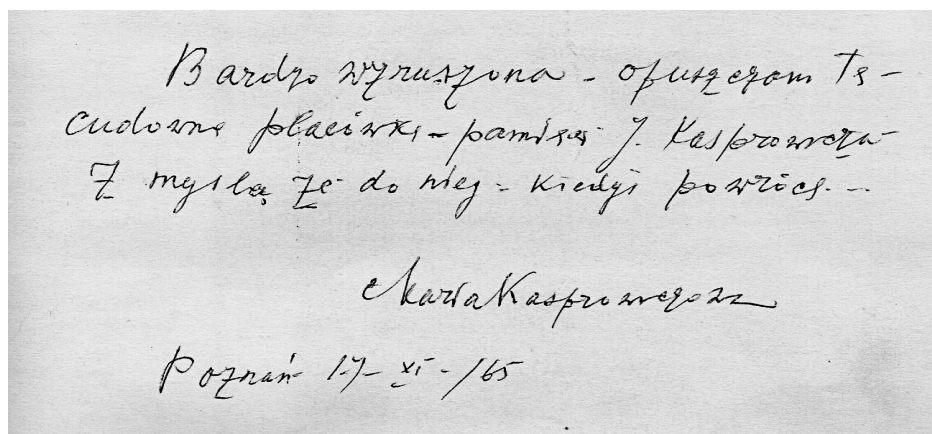 Bardzo wzruszona - opuszczam tę -
cudowną placówkę - pamięci J. Kasprowicza
Z myślą że do niej - kiedyś powrócę. -
Maria Kasprowiczowa
Poznań 17- XI - /65